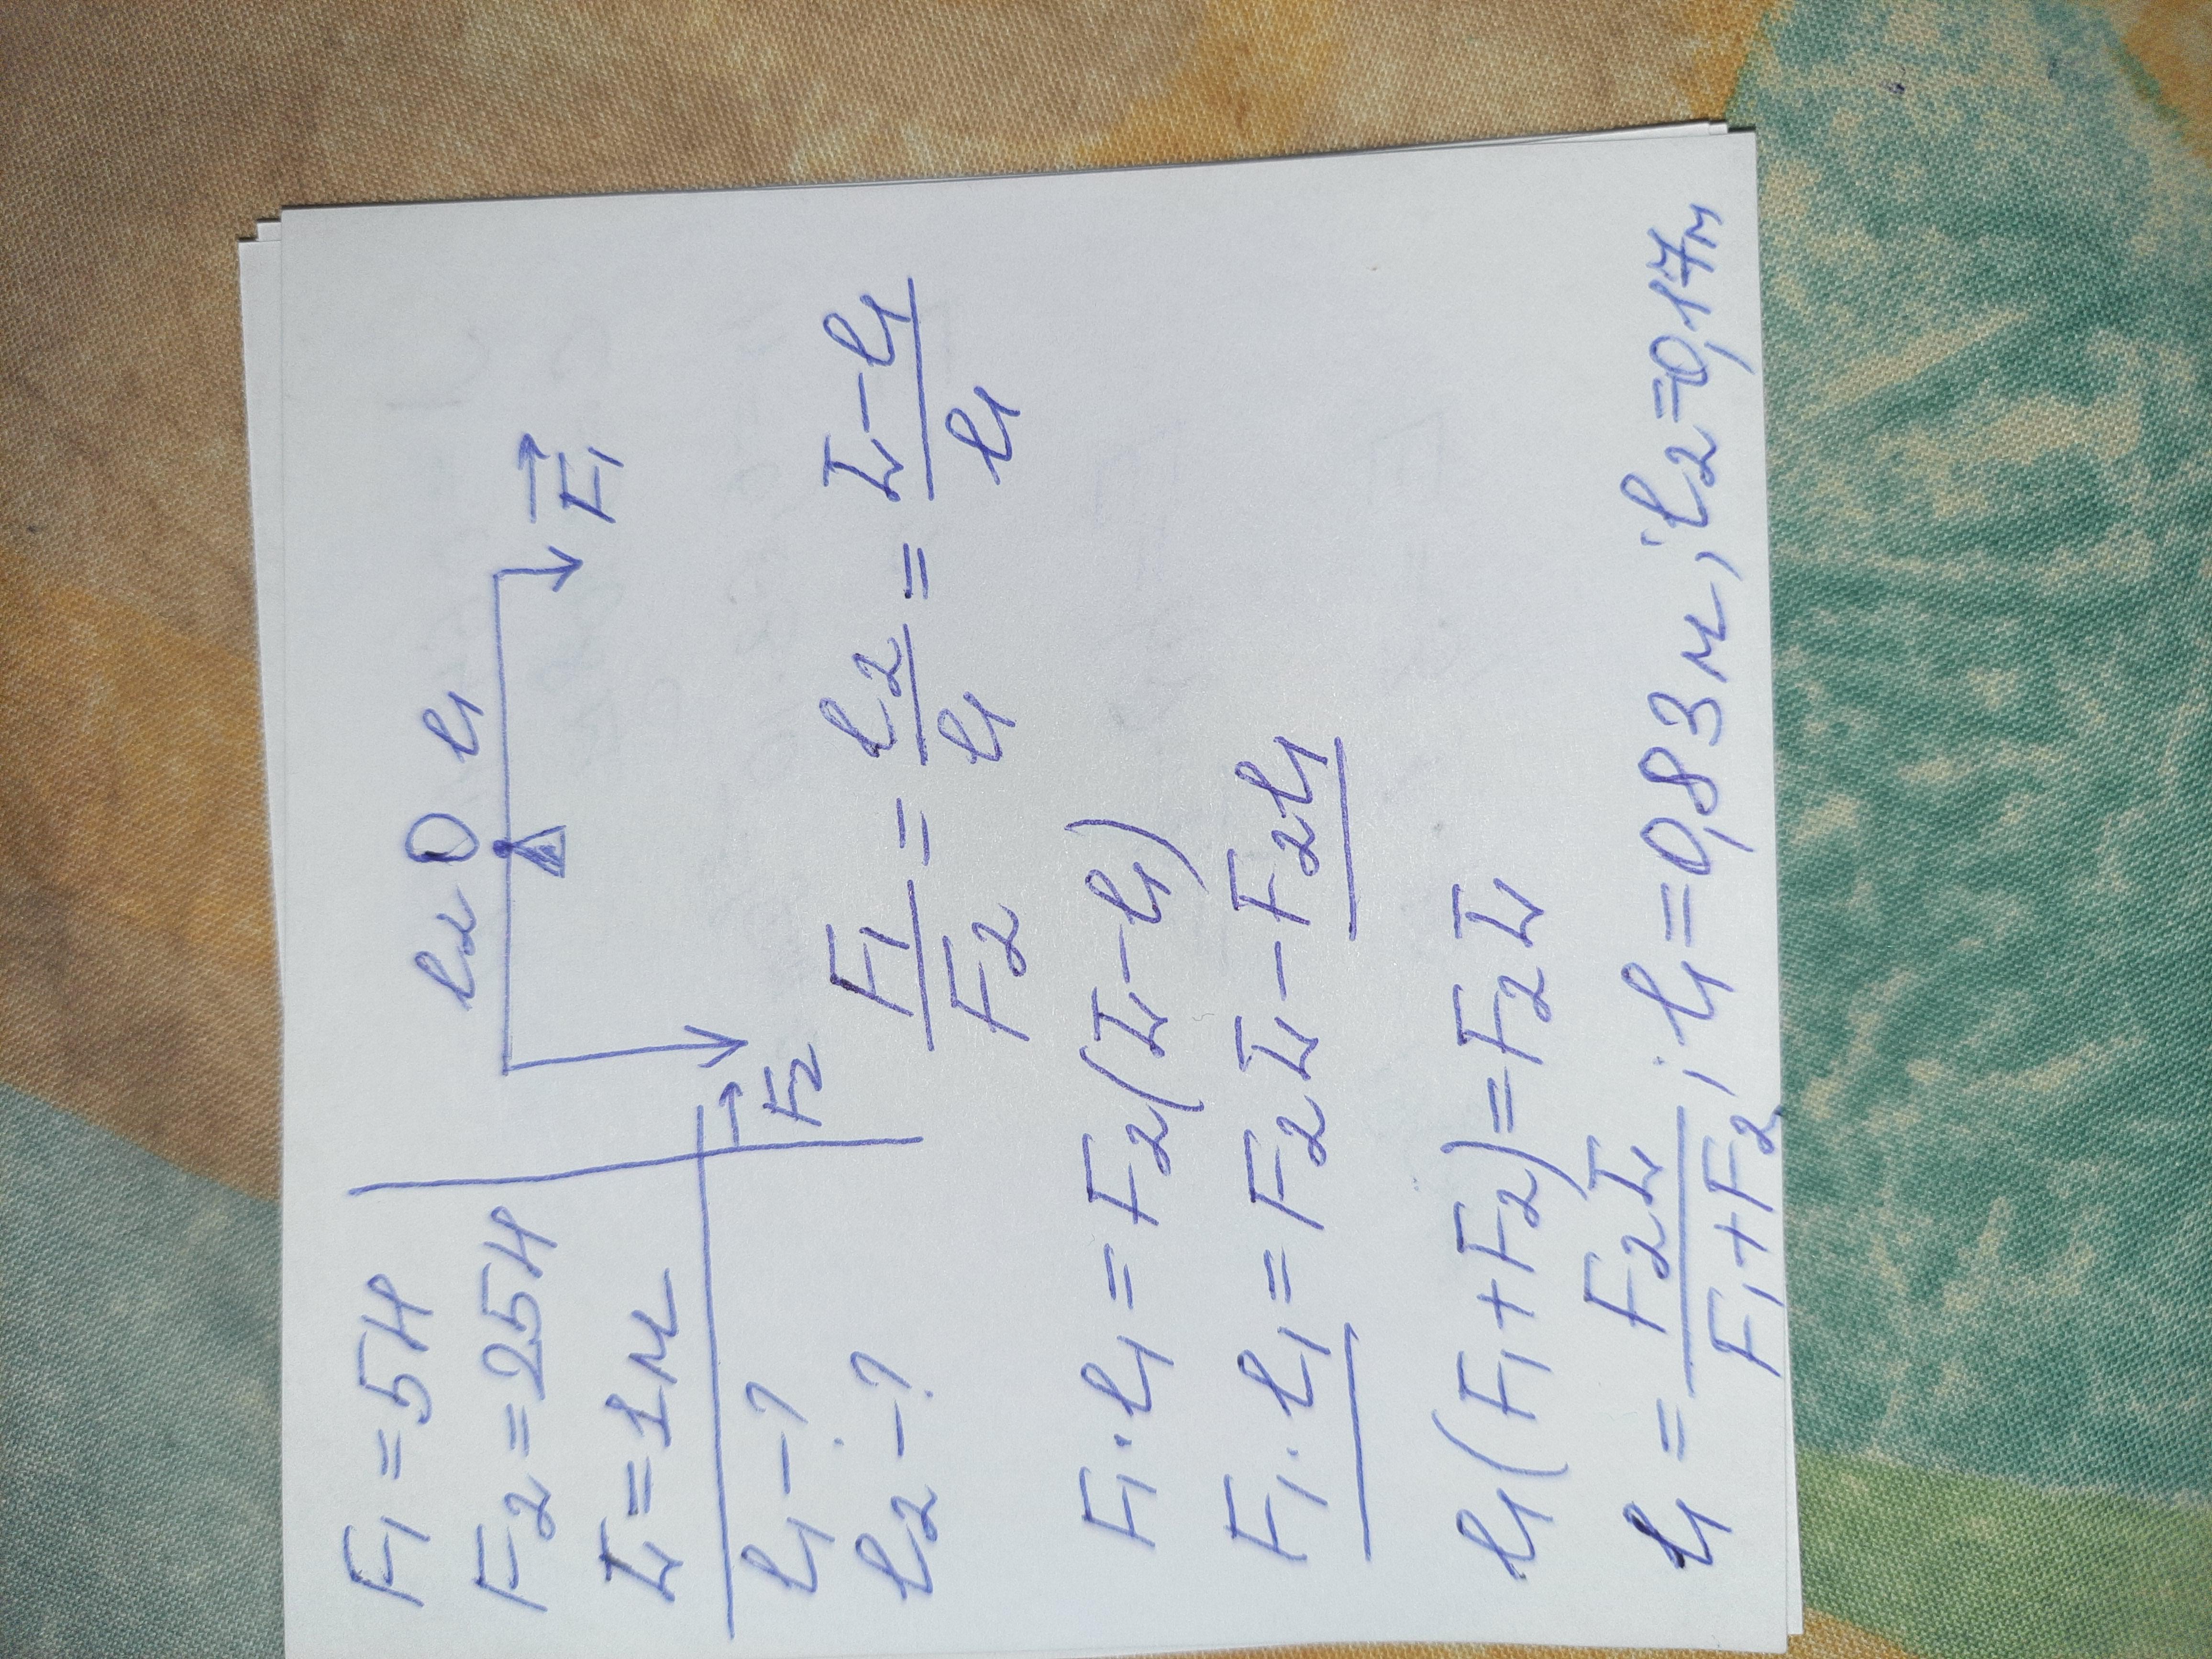 F₁ = 5Н
F₂ = 25Н
L = 1м
l₁ – ?
l₂ – ?
l₂ O l₁
F₁
F₂
F₁/F₂ = l₂/l₁ = (L – l₁)/l₁
F₁ · l₁ = F₂(L – l₁)
F₁ · l₁ = F₂L – F₂l₁
l₁(F₁ + F₂) = F₂L
l₁ = F₂L/(F₁ + F₂); l₁ = 0,83м; l₂ = 0,17м